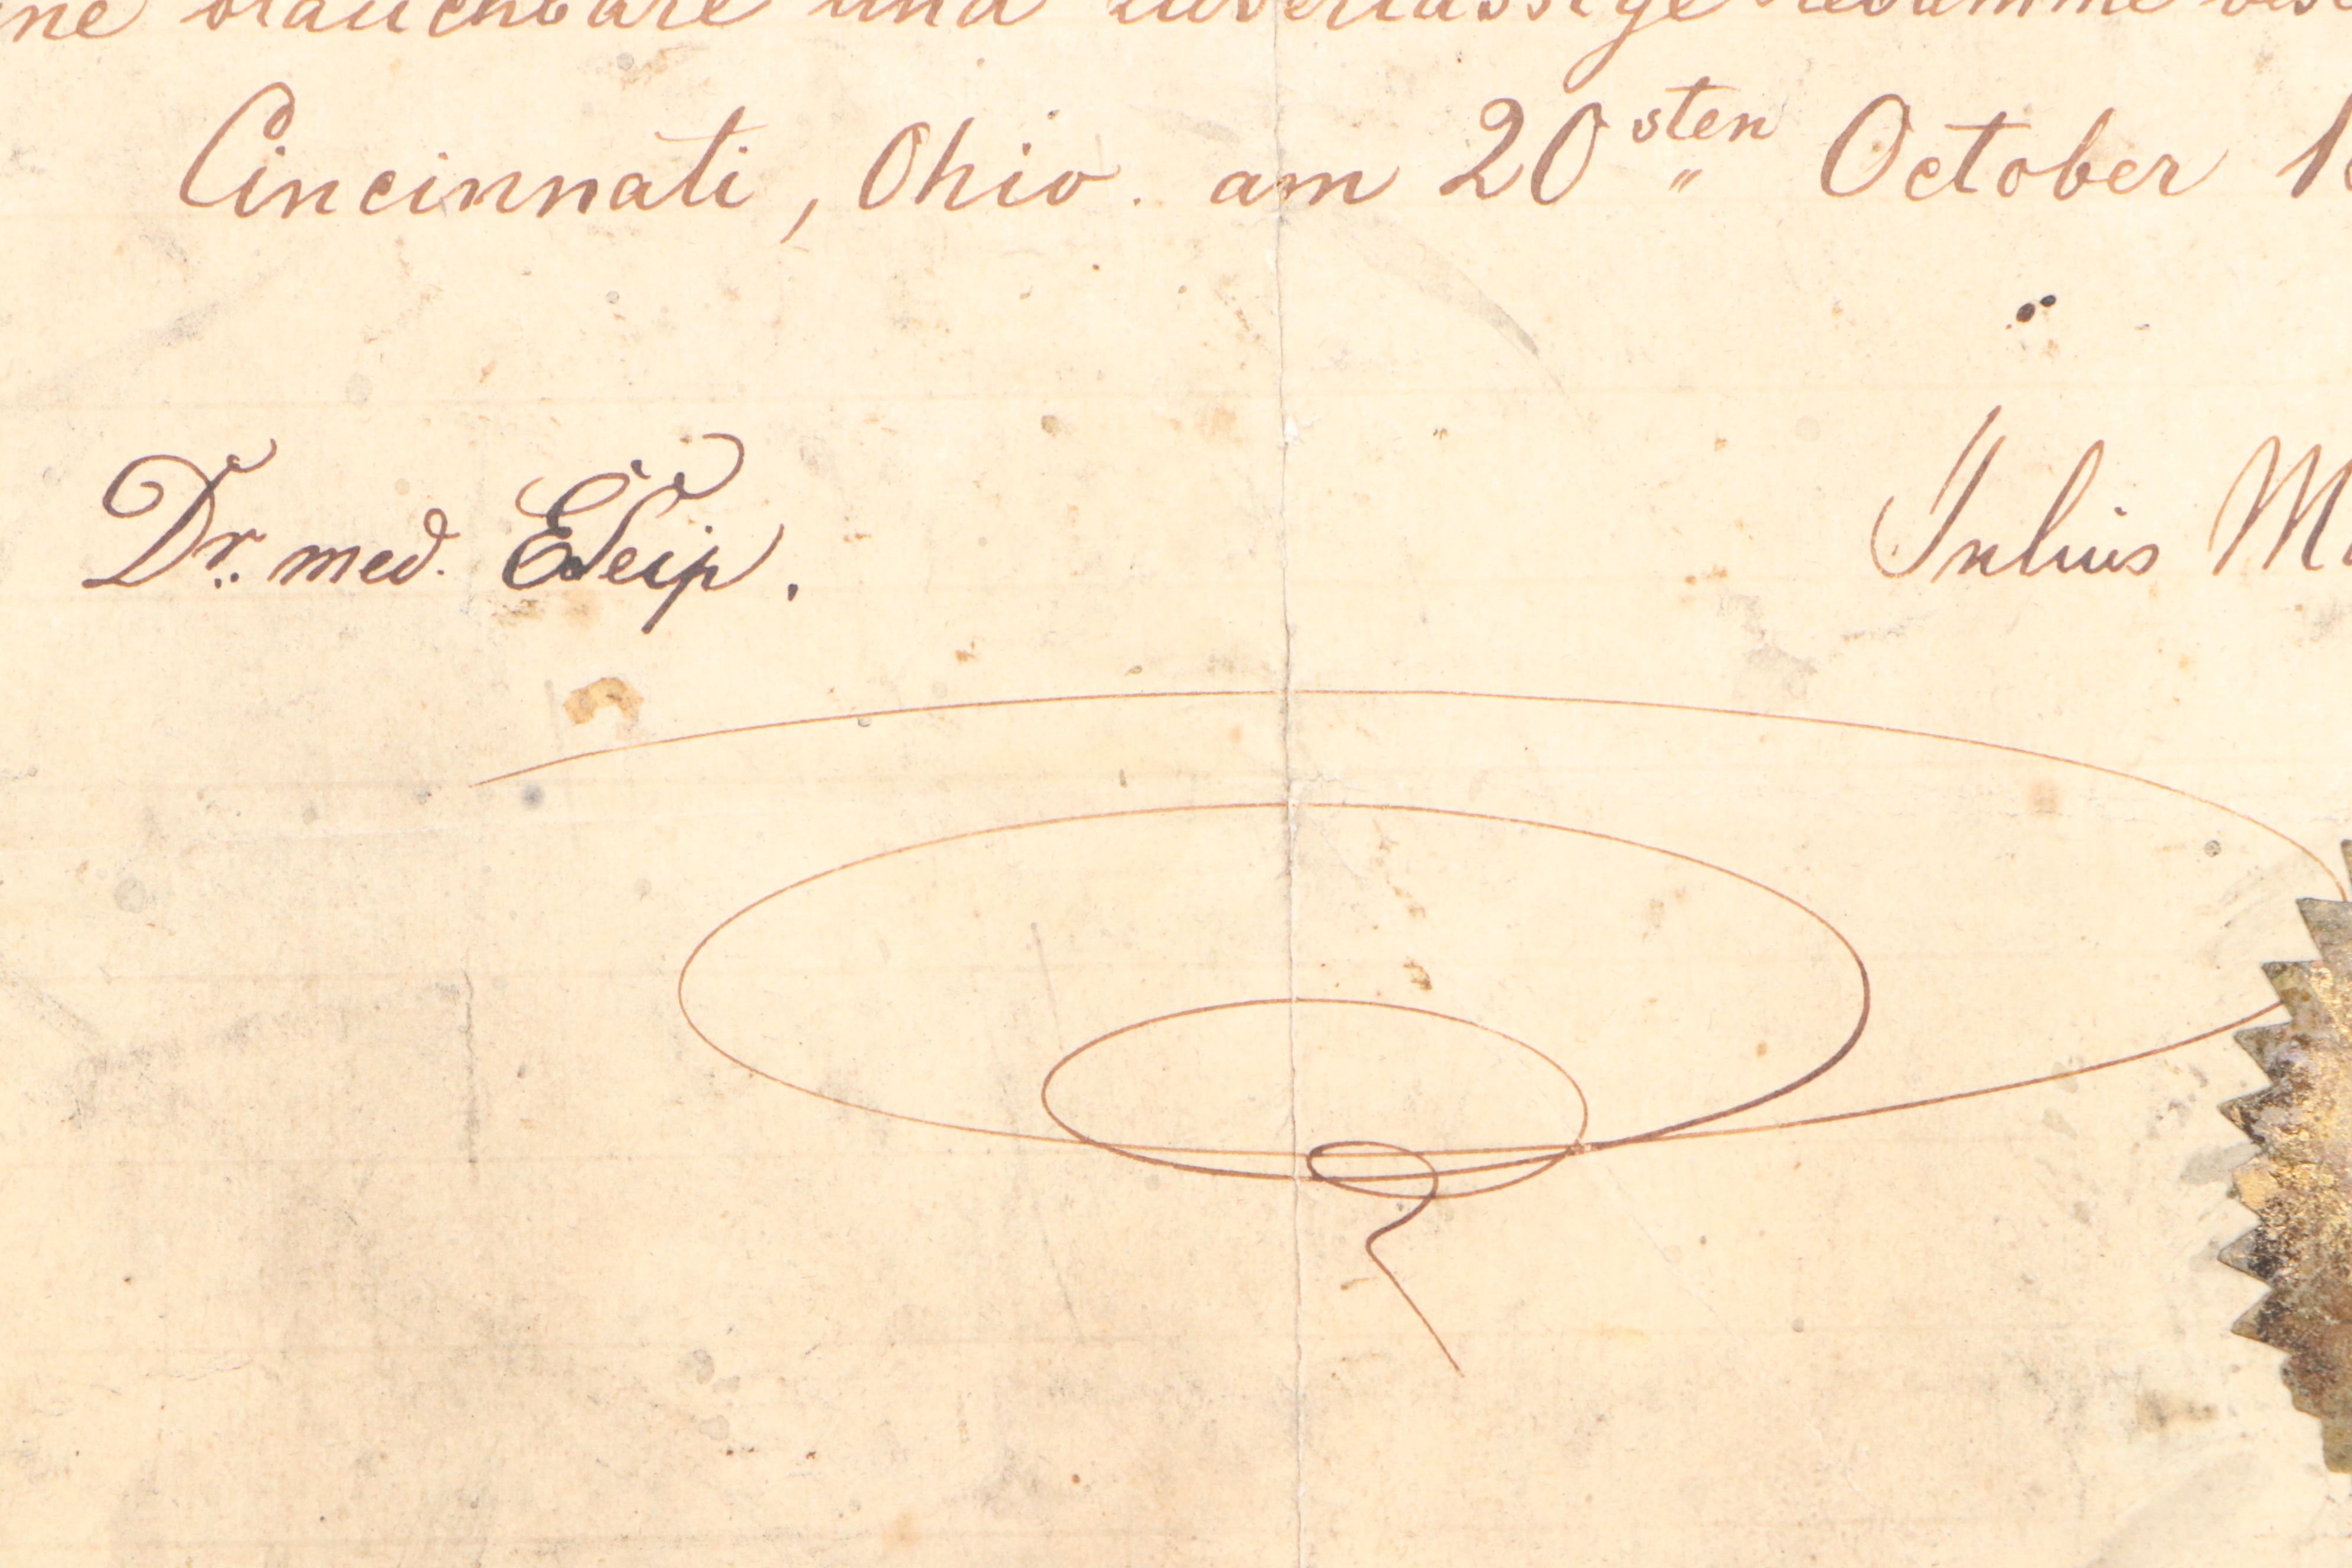 ne brauchbare und zuverlässige Hebamme
Cincinnati, Ohio. am 20sten October 18
Dr. med. ESeip.
Julius M